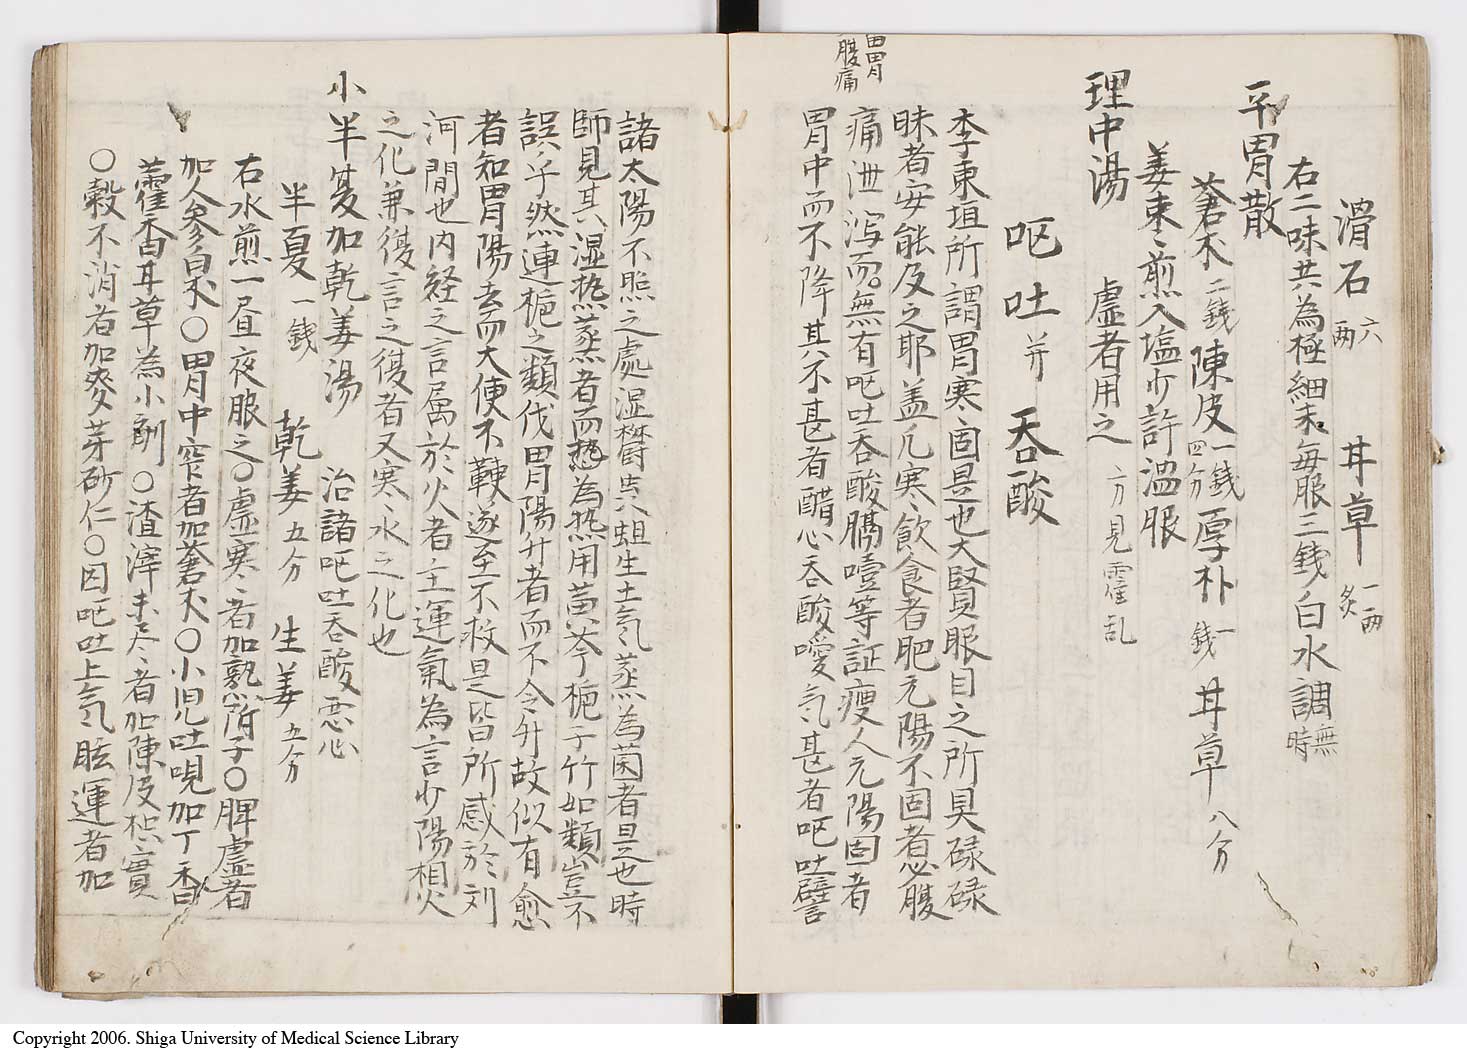 滑石 六両 甘草 一両炙
右二味共為極細末毎服三錢白水調無時
平胃散
蒼朮二錢 陳皮一錢四分 厚朴一錢 甘草八分
姜棗煎入塩少許温服
理中湯 虚者用之 方見霍乱
呕吐 并 吞酸
李東垣所謂胃寒固是也大賢眼目之所具碌碌
昧者安能及之耶盖凡寒飲食者肥元陽不固者必腹
痛泄泻而無有呕吐吞酸膈噎等証瘦人元陽固者
胃中而不降其不甚者醋心吞酸噯気甚者呕吐譬
胃腹痛
諸太陽不照之處湿欝共蛆生土気蒸為菌者是也時
師見其湿热蒸者而愁為热用黄芩栀子竹如類豈不
誤乎然連栀之類伐胃陽升者而不令升故似有愈
者知胃陽去而大便不鞕遂至不救是皆所感於刘
河間也内経之言属於火者主運氣為言少陽相火
之化兼復言之復者又寒水之化也
小半夏加乾姜湯 治諸呕吐吞酸悪心
半夏一錢 乾姜五分 生姜五分
右水煎一昼夜服之○虚寒者加熟附子○脾虚者
加人参白朮○胃中窄者加蒼朮○小児吐哯加丁香
藿香甘草為小剤○渣滓未尽者加陳皮枳實
○穀不消者加麥芽砂仁○因呕吐上気眩運者加
Copyright 2006. Shiga University of Medical Science Library